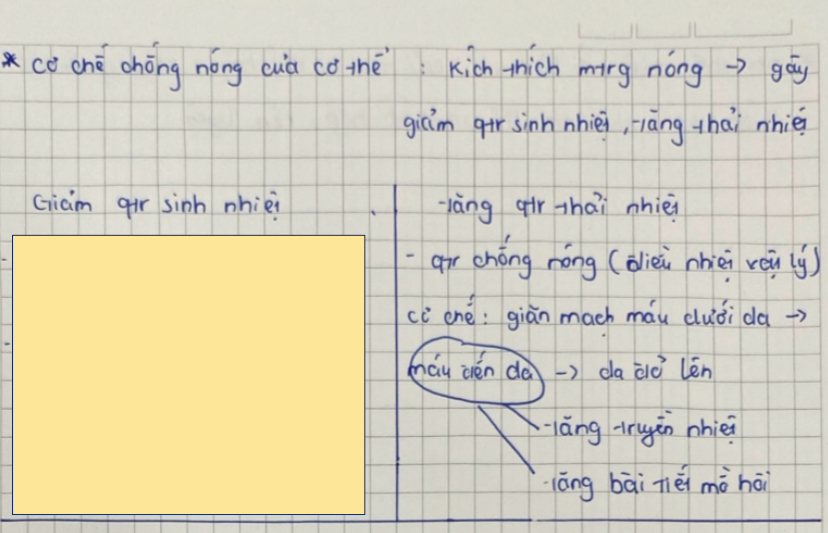 * cơ chế chống nóng của cơ thể : Kích thích mtrg nóng → gây
giảm qtr sinh nhiệt, tăng thải nhiệt
Giảm qtr sinh nhiệt
tăng qtr thải nhiệt
- qtr chống nóng (điều nhiệt vật lý)
cơ chế: giãn mạch máu dưới da →
máu đến da → da đỏ lên
- tăng truyền nhiệt
- tăng bài tiết mồ hôi